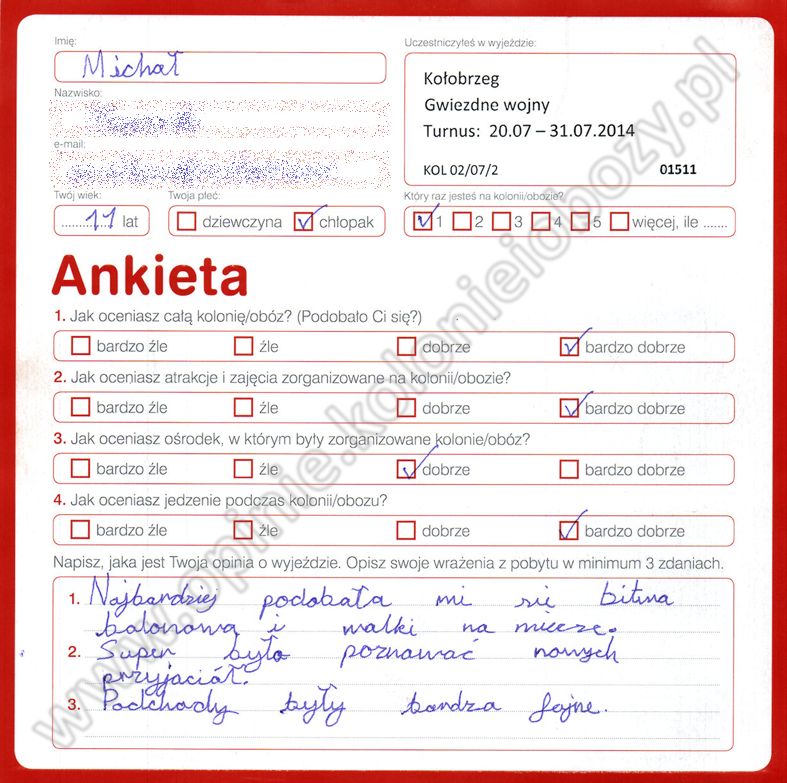 Imię:
Michał
Uczestniczyłeś w wyjeździe:
Kołobrzeg
Gwiezdne wojny
Turnus: 20.07 – 31.07.2014
KOL 02/07/2 01511
Nazwisko:
e-mail:
Twój wiek: Twoja płeć: Który raz jesteś na kolonii/obozie?
11 lat dziewczyna chłopak 1 2 3 4 5 więcej, ile .......
Ankieta
1. Jak oceniasz całą kolonię/obóz? (Podobało Ci się?)
bardzo źle źle dobrze bardzo dobrze
2. Jak oceniasz atrakcje i zajęcia zorganizowane na kolonii/obozie?
bardzo źle źle dobrze bardzo dobrze
3. Jak oceniasz ośrodek, w którym były zorganizowane kolonie/obóz?
bardzo źle źle dobrze bardzo dobrze
4. Jak oceniasz jedzenie podczas kolonii/obozu?
bardzo źle źle dobrze bardzo dobrze
Napisz, jaka jest Twoja opinia o wyjeździe. Opisz swoje wrażenia z pobytu w minimum 3 zdaniach.
1. Najbardziej podobała mi się bitwa
balonowa i walki na miecze.
2. Super było poznawać nowych
przyjaciół.
3. Podchody były bardzo fajne.
www.opinie.kolonieiobozy.pl